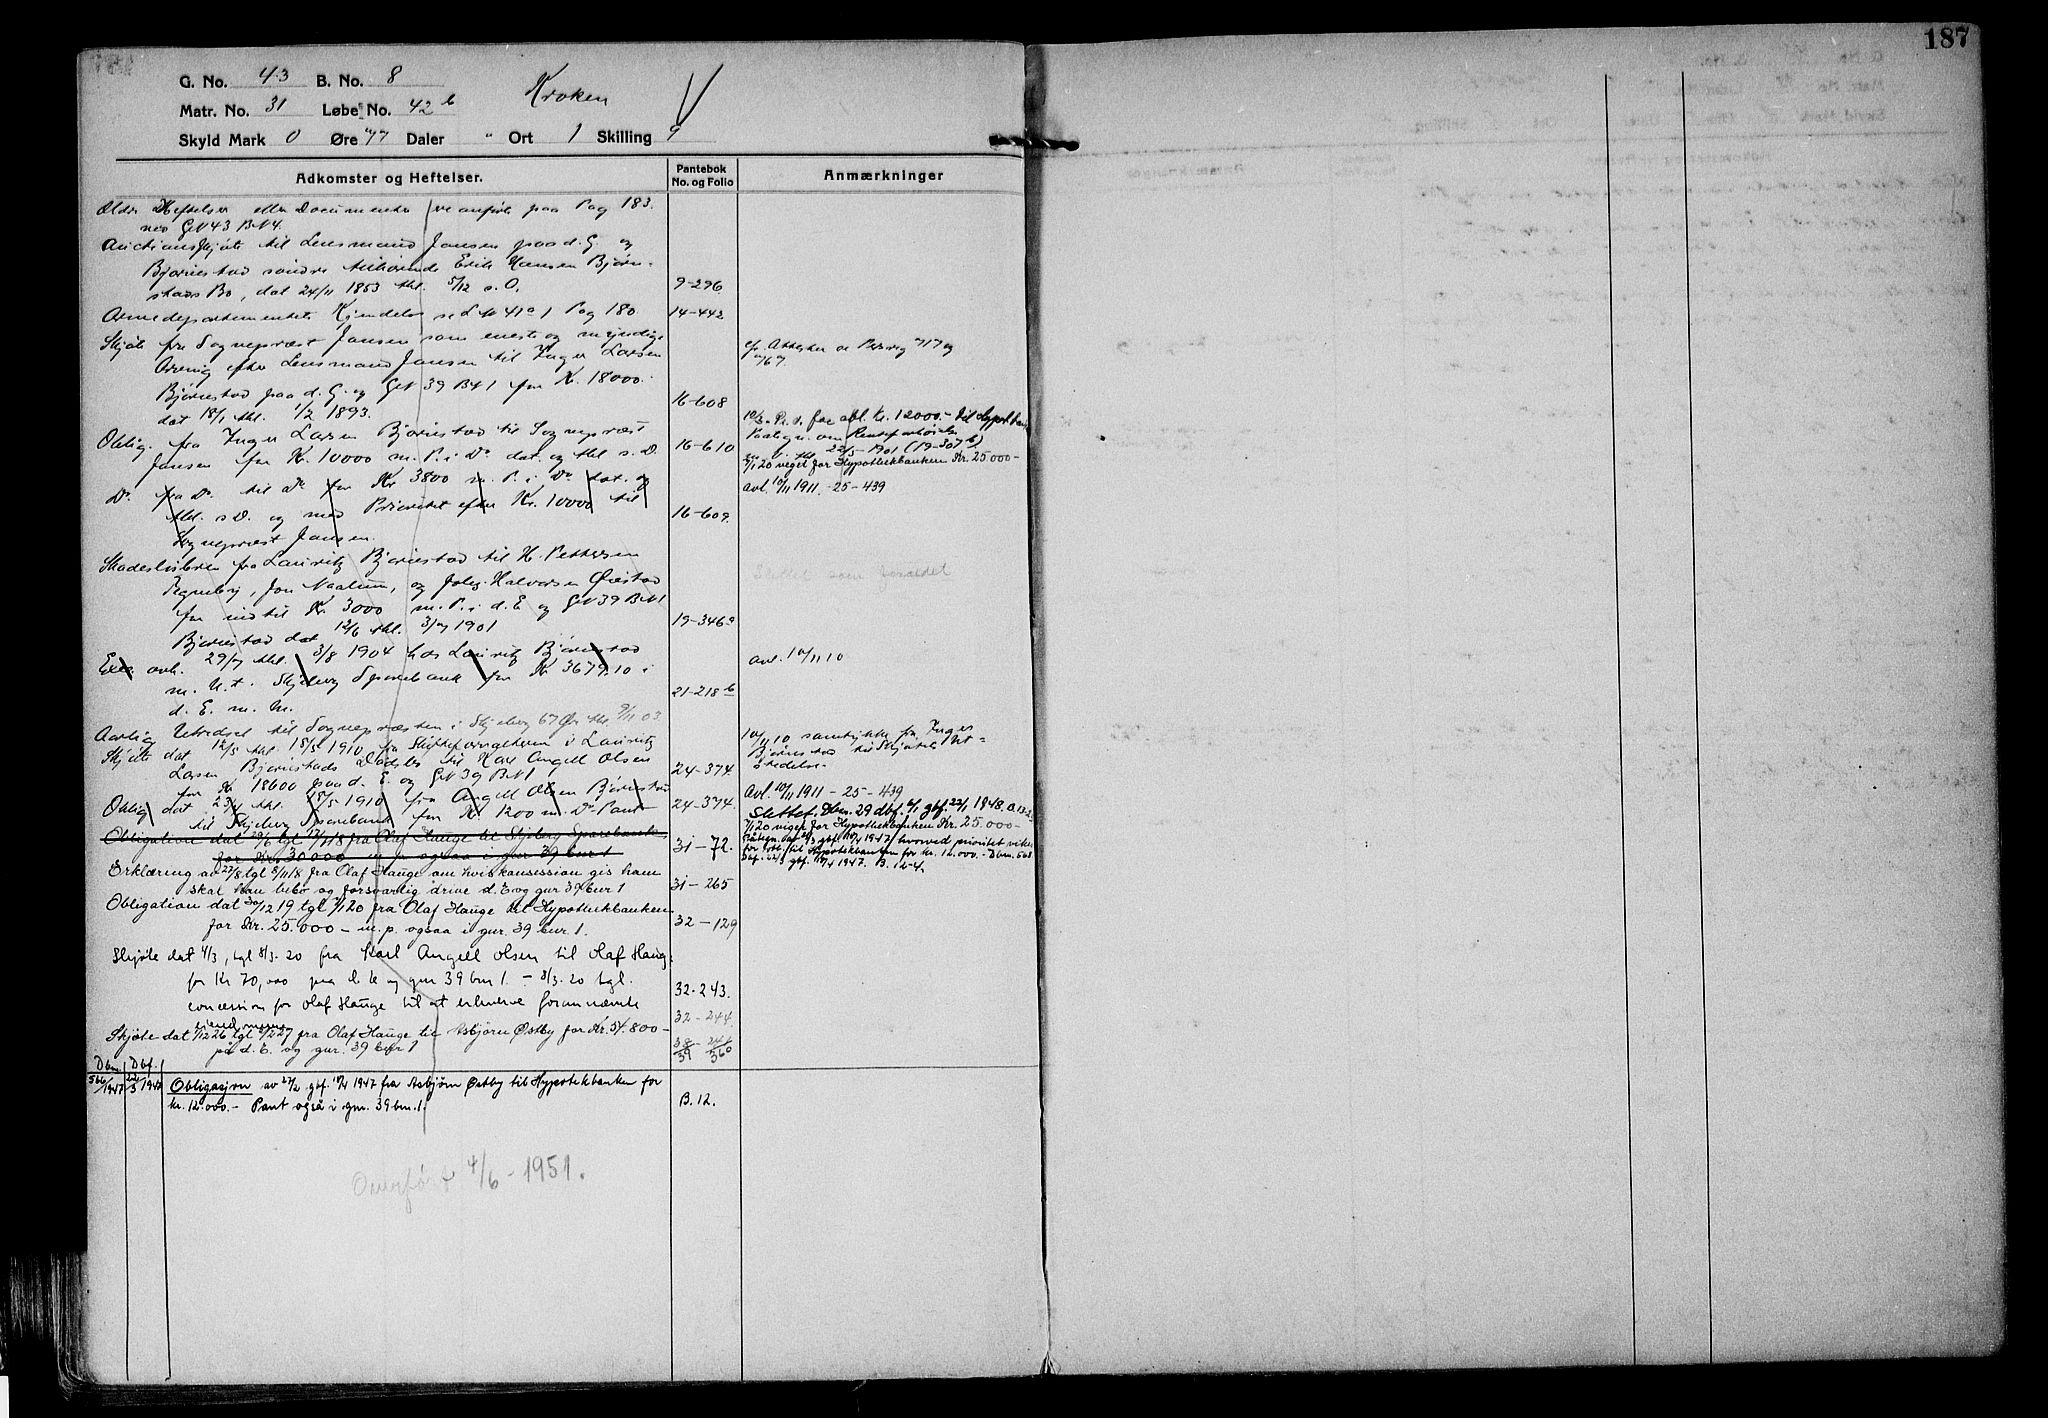 187
G. No. 43 B. No. 8
Matr. No. 31 Løbe No. 42 b Kroken
Skyld Mark 0 Øre 77 Daler " Ort 1 Skilling 9
Adkomster og Heftelser. Pantebok No. og Folio Anmærkninger
Ældre Heftelser eller Documenter se anført paa Pag 183.
ved GN 43 BN 4.
Auctionsskjøte til Lensmand Jansen paa d. G. og
Bjørnestad søndre tilhørende Erik Hansen Bjørn-
stads Bo, dat 24/11 1853 thl. 5/12 s. D. 9-296
Armedepartementets Kjendelse se LN 41 a 1 Pag 180 14-442
Skjøte fra Sogneprest Jansen som eneste og myndige
Arving efter Lensmand Jansen til Inger Larsen
Bjørnestad paa d. G. og GN 39 BN 1 for Kr. 18000.
dat 18/1 thl. 1/2 1893. 16-608
Oblig. fra Inger Larsen Bjørnestad til Sogneprest 16-610
Jansen for Kr. 10000 m. P. i Do dat. og thl s. D.
Do fra Do til Do for Kr 3800 m. P. i Do dat. og
thl. s D. og med Prioritet efter Kr. 10000 til 16-609.
Sogneprest Jansen.
Skadesløsbrev fra Lauritz Bjørnestad til H. Pettersen
Tegneby, Jon Naalum, og Johs. Halvorsen Øiestad
for indtil Kr 3000 m. P. i d. E og GN 39 BN 1
Bjørnestad dat 12/6 thl. 3/7 1901 19-346 a
Exec avh. 29/7 thl. 3/8 1904 hos Lauritz Bjørnestad
m. U. t. Skjeberg Sparebank for Kr 3679.10 i
d. E. m. m. 21-218 b
Aarlig Utredsel til Sognepresten i Skjeberg 67 Øre thl. 9/11 03.
Skjøte dat 12/5 thl 18/5 1910 fra Skifteforvalteren i Lauritz
Larsen Bjørnestads Dødsbo til Karl Angell Olsen
for Kr 18600 paa d. E. og GN 39 BN 1 24-374
Oblig dat 23/4 thl. 18/5 1910 fra Angell Olsen Bjørnestad
til Skjeberg Sparebank for Kr 1200 m. Do Pant 24-374.
Obligation dat 29/6 tgl 17/7 18 fra Olaf Hauge til Skjeberg Sparebank
for Kr. 30000 m p ogsaa i gnr 39 bnr 1 31-72.
Erklæring av 27/8 tgl 8/11 18 fra Olaf Hauge om hvis konsession gis ham
skal han bebo og forsvarlig drive d. E og gnr 39 bnr 1 31-265
Obligation dat 30/12 19 tgl 7/1 20 fra Olaf Hauge til Hypothekbanken
for Kr. 25.000 – m. p. ogsaa i gnr. 39 bnr. 1. 32-129
Skjøte dat 4/3, tgl 8/3-20 fra Karl Angell Olsen til Olaf Hauge
for Kr 70,000 paa d. e og gnr 39 bn 1. – 8/3.20 tgl.
concession for Olaf Hauge til at erhverve forannævnte 32-243.
eiendomme 32-244
Skjøte dat 7/12 26 tgl 7/2 27 fra Olaf Hauge til Asbjørn Østby for Kr. 54.800 –
på d. E. og gnr. 39 bnr 1 38/39 241/360
Dbn. Dbf.
566/1947 22/3 1947 Obligasjon av 27/2 gbf. 10/4 1947 fra Asbjørn Østby til Hypotekbanken for
kr. 12.000.– Pant også i gnr. 39 bn. 1. B. 12.
Overført 4/6-1951.
cfr. Attester se Persreg 717 og
767.
10/3. Pr. v. for obl. Kr. 12000.– til Hypothbank
Paategn. om Renteforhøielse
thl. 22/5-1901 (19-307 b)
7/1 20 veget for Hypothekbanken Kr. 25.000 –
Avl. 10/11 1911. -25-439
Slettet som foreldet
Avl. 10/11 10
10/11 10 samtykke fra Inger
Bjørnestad til Skjøtets Ut-
stedelse
Avl. 10/11 1911 – 25 – 439
Slettet, Dbn. 29 dbf. 6/1 gbf. 22/1 1948.
7/1 20 viger for Hypothekbanken Kr. 25.000 –
Påtegn. dat 24/3 gbf. 10/4 1947, hvorved prioritet vikes
for obl. til Hypotekbanken for kr. 12.000. – Dbn. 568
Dbf. 22/3 gbf. 10/4 1947. B. 12-4.